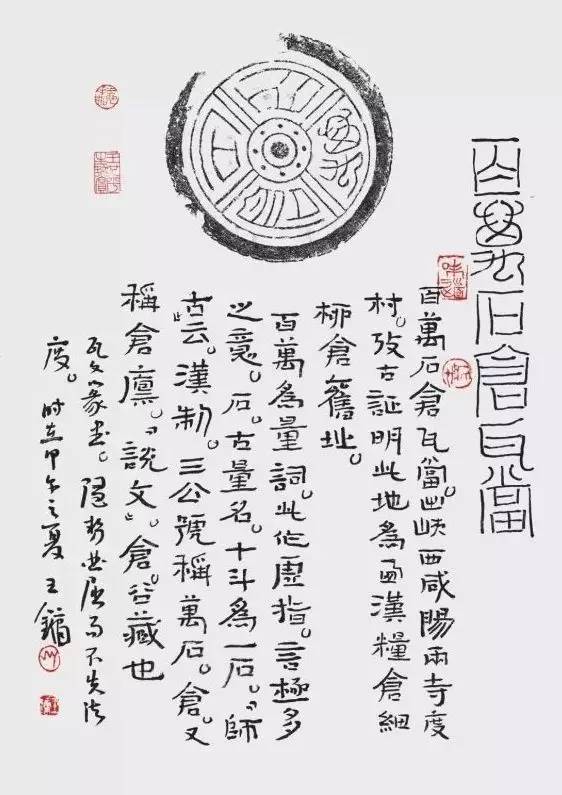 百萬石倉瓦當
百萬石倉瓦當。出陝西咸陽兩寺度
村。攷古証明此地為西漢糧倉細
柳倉舊址。
百萬為量詞。此作虛指。言極多
之意。石。古量名。十斗為一石。『師
古』云。漢制。三公號稱萬石。倉。又
稱倉廩。『說文』。倉。谷藏也
瓦文篆書。隱曲屈而不失法
度。時在甲午之夏 王鏞